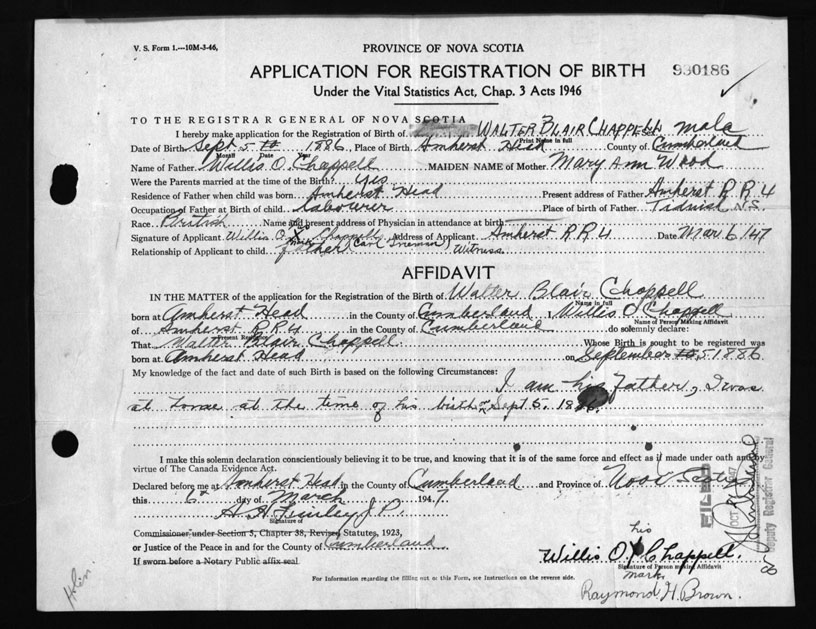 V. S. Form 1.—10M-3-46,
PROVINCE OF NOVA SCOTIA
APPLICATION FOR REGISTRATION OF BIRTH
930186
Under the Vital Statistics Act, Chap. 3 Acts 1946
TO THE REGISTRAR GENERAL OF NOVA SCOTIA
I hereby make application for the Registration of Birth of WALTER BLAIR CHAPPELL Male
Print Name in full
Date of Birth Sept 5 th 1886, Place of Birth Amherst Head County of Cumberland
Month Date Year
Name of Father Willis O. Chappell MAIDEN NAME of Mother Mary Ann Wood
Were the Parents married at the time of the Birth? Yes
Residence of Father when child was born Amherst Head Present address of Father Amherst R R 4
Occupation of Father at Birth of child labourer Place of birth of Father Tidnish N.S.
Race British Name and present address of Physician in attendance at birth
Signature of Applicant Willis O. X Chappell Address of Applicant Amherst R R 4 Date Mar 6/47
his mark
Relationship of Applicant to child father Witness
AFFIDAVIT
IN THE MATTER of the application for the Registration of the Birth of Walter Blair Chappell
Name in full
born at Amherst Head in the County of Cumberland, Willis O Chappell
Name of Person Making Affidavit
of Amherst R R 4 in the County of Cumberland do solemnly declare:
Present Residence
That Walter Blair Chappell Whose Birth is sought to be registered was
born at Amherst Head on September th 5 1886
My knowledge of the fact and date of such Birth is based on the following Circumstances:
I am his Father, I was
at home at the time of his birth on Sept 5. 1886.
I make this solemn declaration conscientiously believing it to be true, and knowing that it is of the same force and effect as if made under oath and by
virtue of The Canada Evidence Act.
Declared before me at Amherst Head in the County of Cumberland and Province of Nova Scotia
this 6th day of March 1947
A. A. Finley J.P.
Signature of
Commissioner under Section 3, Chapter 38, Revised Statutes, 1923,
or Justice of the Peace in and for the County of Cumberland
If sworn before a Notary Public affix seal
his
Willis O. X Chappell.
Signature of Person making Affidavit
mark
For Information regarding the filling out of this Form, see Instructions on the reverse side.
Raymond H. Brown.
Deputy Registrar General